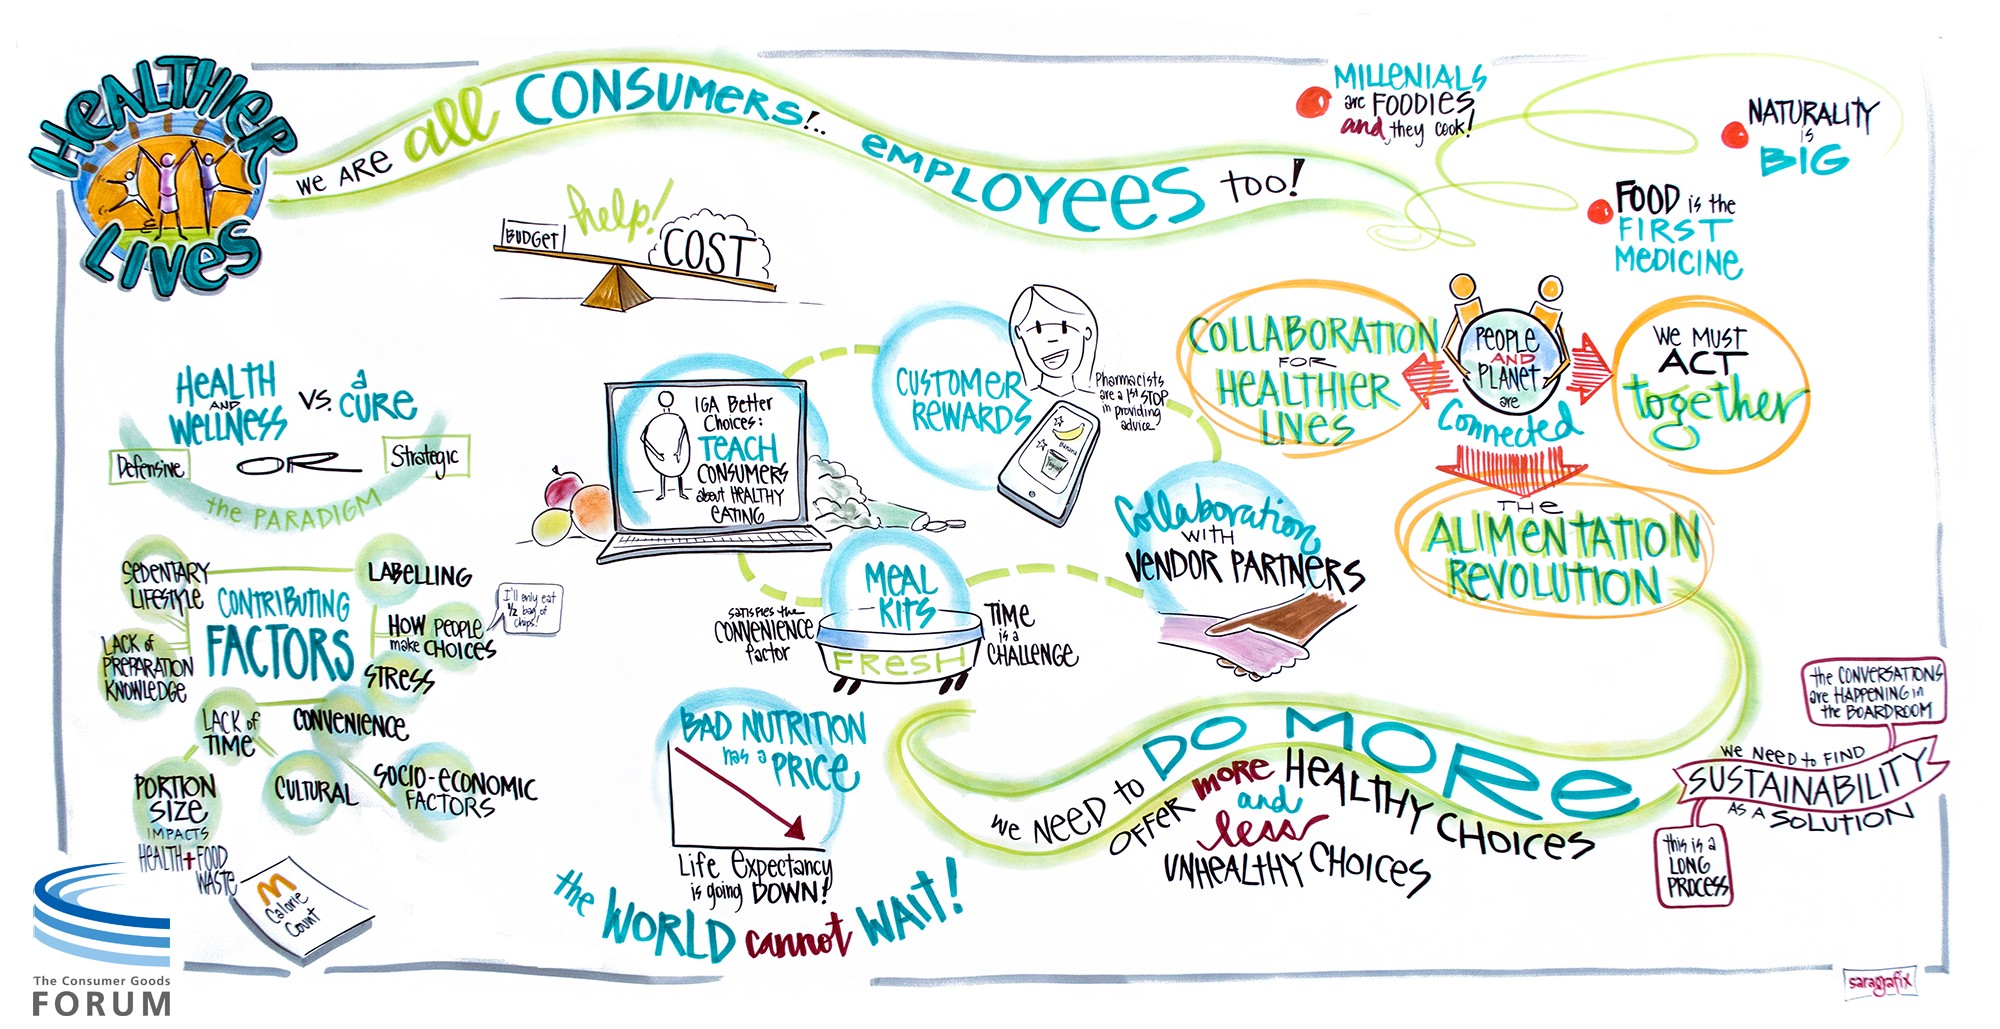 HEALTHIER
LIVES
WE ARE all CONSUMERS!.. EMPLOYEES TOO!
MILLENIALS
are FOODIES
and they cook!
NATURALITY
is
BIG
FOOD is the
FIRST
MEDICINE
help!
BUDGET
COST
HEALTH
AND
WELLNESS
VS.
a
CURE
Defensive
OR
Strategic
the PARADIGM
CONTRIBUTING
FACTORS
SEDENTARY
LIFESTYLE
LABELLING
HOW PEOPLE
make CHOICES
I'll only eat
1/2 bag of
chips!
LACK of
PREPARATION
KNOWLEDGE
STRESS
LACK of
TIME
CONVENIENCE
PORTION
SIZE
IMPACTS
HEALTH + FOOD
WASTE
CULTURAL
SOCIO-ECONOMIC
FACTORS
M
Calorie
Count
IGA Better
Choices:
TEACH
CONSUMERS
about HEALTHY
EATING
CUSTOMER
REWARDS
Pharmacists
are a 1st STOP
in providing
advice
Banana
Yogurt
Collaboration
WITH
VENDOR PARTNERS
MEAL
KITS
FRESH
SATISFIES the
CONVENIENCE
factor
TIME
is a
CHALLENGE
BAD NUTRITION
has a
PRICE
Life Expectancy
is going DOWN!
the WORLD cannot WAIT!
COLLABORATION
FOR
HEALTHIER
LIVES
PEOPLE
AND
PLANET
are
Connected
WE MUST
ACT
together
THE
ALIMENTATION
REVOLUTION
WE NEED to DO MORE
OFFER more HEALTHY CHOICES
and
less
UNHEALTHY CHOICES
the CONVERSATIONS
are HAPPENING in
the BOARDROOM
WE NEED to FIND
SUSTAINABILITY
AS A SOLUTION
this is a
LONG
PROCESS
The Consumer Goods
FORUM
saragrafix